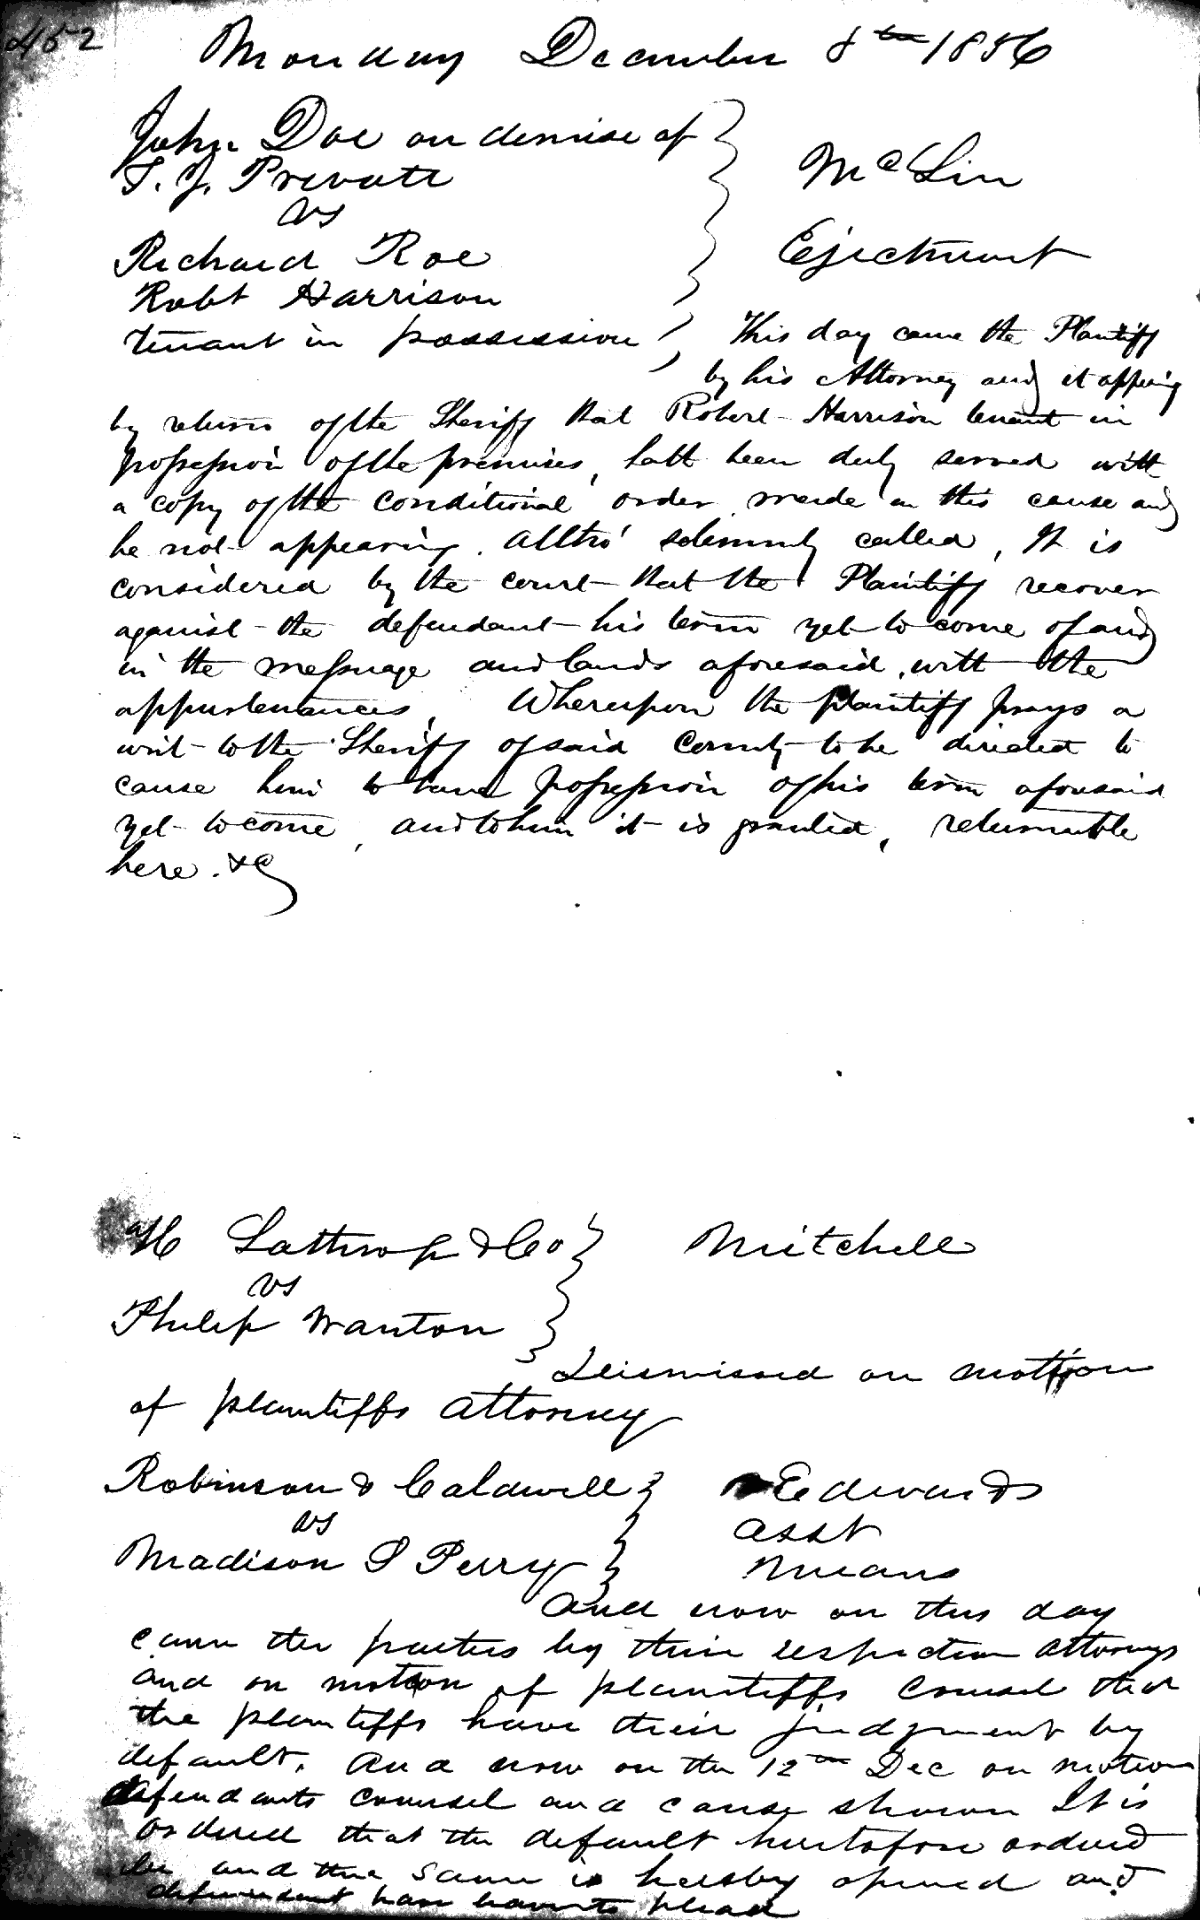 452
Monday December 8th 1856
John Doe on demise of
T. J. Prevatt
vs
Richard Roe
Robt Harrison
tenant in possession
McLin
Ejectment
This day came the Plaintiff
by his Attorney and it appring
by return of the Sheriff that Robert Harrison tenant in
possession of the premises, hath been duly served with
a copy of the conditional order made in this cause and
he not appearing. altho' solemnly called, It is
considered by the court that the Plaintiff recover
against the defendant his term yet to come of and
in the messuage and lands aforesaid, with the
appurtenances, Whereupon the plaintiff prays a
writ to the Sheriff of said County to be directed to
cause him to have possession of his term aforesaid
yet to come, and to him it is granted, returnable
here. &c
H Lathrop & Co
vs
Philip Wanton
Mitchell
Dismissed on motion
of plaintiffs attorney
Robinson & Caldwell
vs
Madison S Perry
Edwards
asst
Means
And now on this day
came the parties by their respective attorneys
and on motion of plaintiffs Counsel that
the plaintiffs have their judgment by
default. And now on the 12th Dec on motion
defendants counsel and cause shown It is
ordered that the default heretofore ordered
be and the same is hereby opened and
defendant have leave to plead